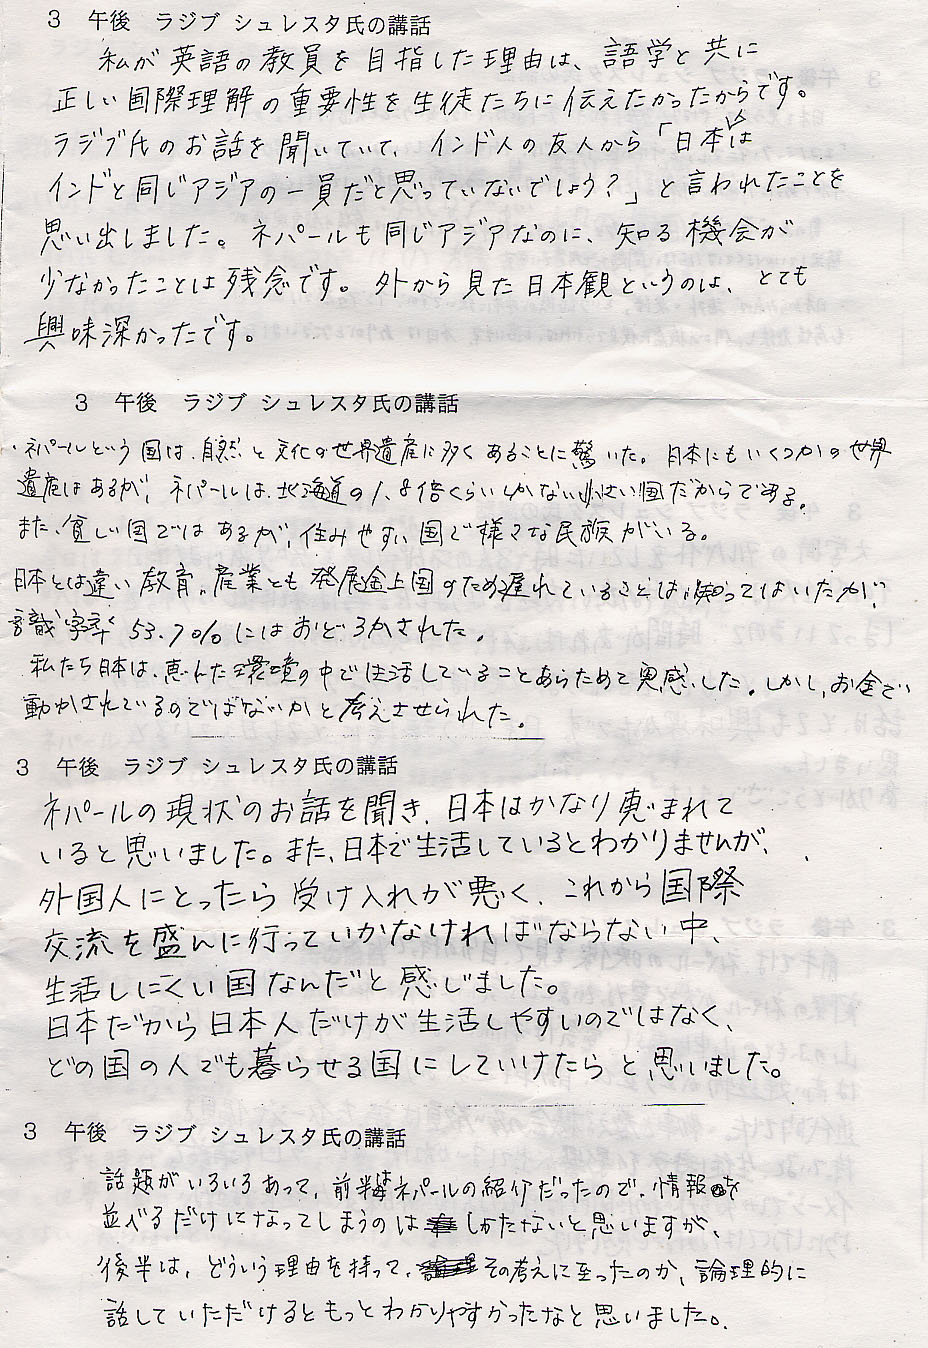 3 午後 ラジブ シュレスタ氏の講話
私が英語の教員を目指した理由は、語学と共に
正しい国際理解の重要性を生徒たちに伝えたかったからです。
ラジブ氏のお話を聞いていて、インド人の友人から「日本は
インドと同じアジアの一員だと思っていないでしょう?」と言われたことを
思い出しました。ネパールも同じアジアなのに、知る機会が
少なかったことは残念です。外から見た日本観というのは、とても
興味深かったです。
3 午後 ラジブ シュレスタ氏の講話
・ネパールという国は、自然と文化の世界遺産に多くあることに驚いた。日本にもいくつかの世界
遺産はあるが、ネパールは、北海道の1.8倍くらいしかない小さい国だからである。
また、貧しい国ではあるが、住みやすい国で様々な民族がいる。
日本とは違い教育、産業とも発展途上国のため遅れていることは知ってはいたが、
識字率53.7%にはおどろかされた。
私たち日本は、恵れた環境の中で生活していることあらためて実感した。しかし、お金で
動かされているのではないかと考えさせられた。
3 午後 ラジブ シュレスタ氏の講話
ネパールの現状のお話を聞き、日本はかなり恵まれて
いると思いました。また、日本で生活しているとわかりませんが、
外国人にとったら受け入れが悪く、これから国際
交流を盛んに行っていかなければならない中、
生活しにくい国なんだと感じました。
日本だから日本人だけが生活しやすいのではなく、
どの国の人でも暮らせる国にしていけたらと思いました。
3 午後 ラジブ シュレスタ氏の講話
話題がいろいろあって、前半はネパールの紹介だったので、情報を
並べるだけになってしまうのはしかたないと思いますが、
後半は、どういう理由を持って、その考えに至ったのか、論理的に
話していただけるともっとわかりやすかったなと思いました。